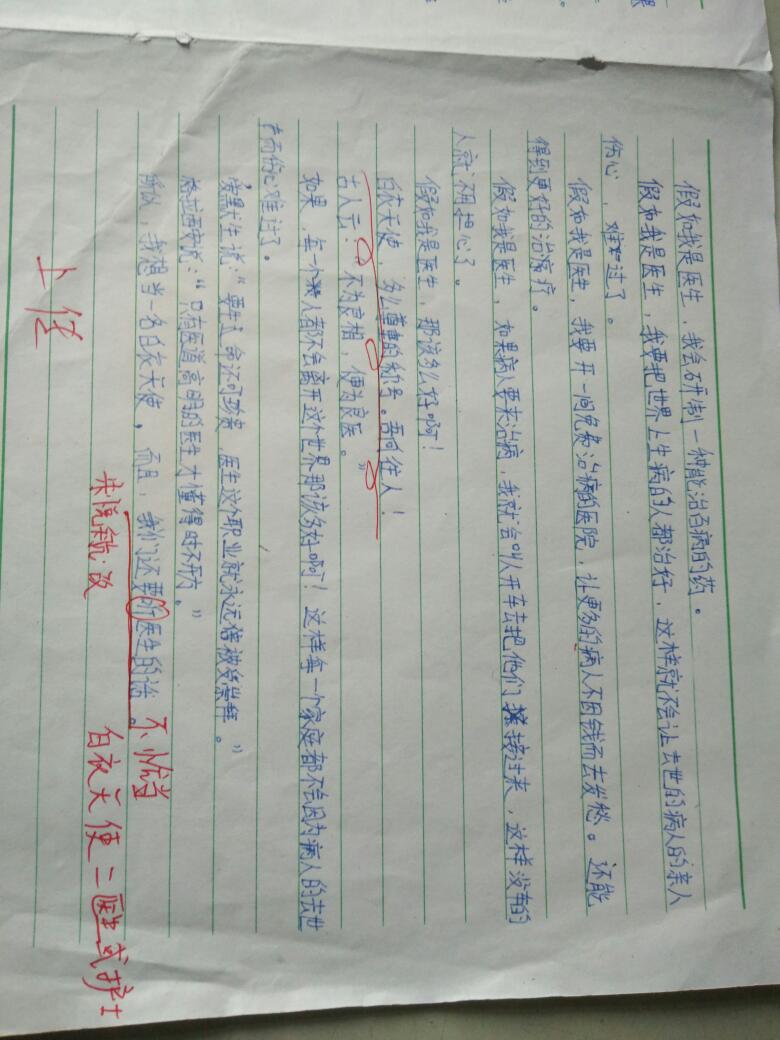 假如我是医生，我会研制一种能治百病的药。
假如我是医生，我要把世界上生病的人都治好，这样就不会让去世的病人的亲人
伤心，难过了。
假如我是医生，我要开一间免费治病的医院，让更多的病人不因钱而去发愁。还能
得到更好的治疗。
假如我是医生，如果病人要来治病，我就会叫人开车去把他们接过来，这样没车的
人就不用担心了。
假如我是医生，那该多么好啊！
白衣天使，多么尊重的称号。吾向往人！
古人云：“不为良相，便为良医。”
如果，每一个人都不会离开这个世界那该多好啊！这样每一个家庭都不会因为病人的去世
而伤心难过了。
爱默生说：“要生命还可珍贵，医生这个职业就永远倍被受崇拜。”
说：“只有医道高明的医生才懂得时不开方。”
所以，我想当一名白衣天使。而且，我们还要听医生的话。
不恰当
白衣天使二医生或护士
改
上佳